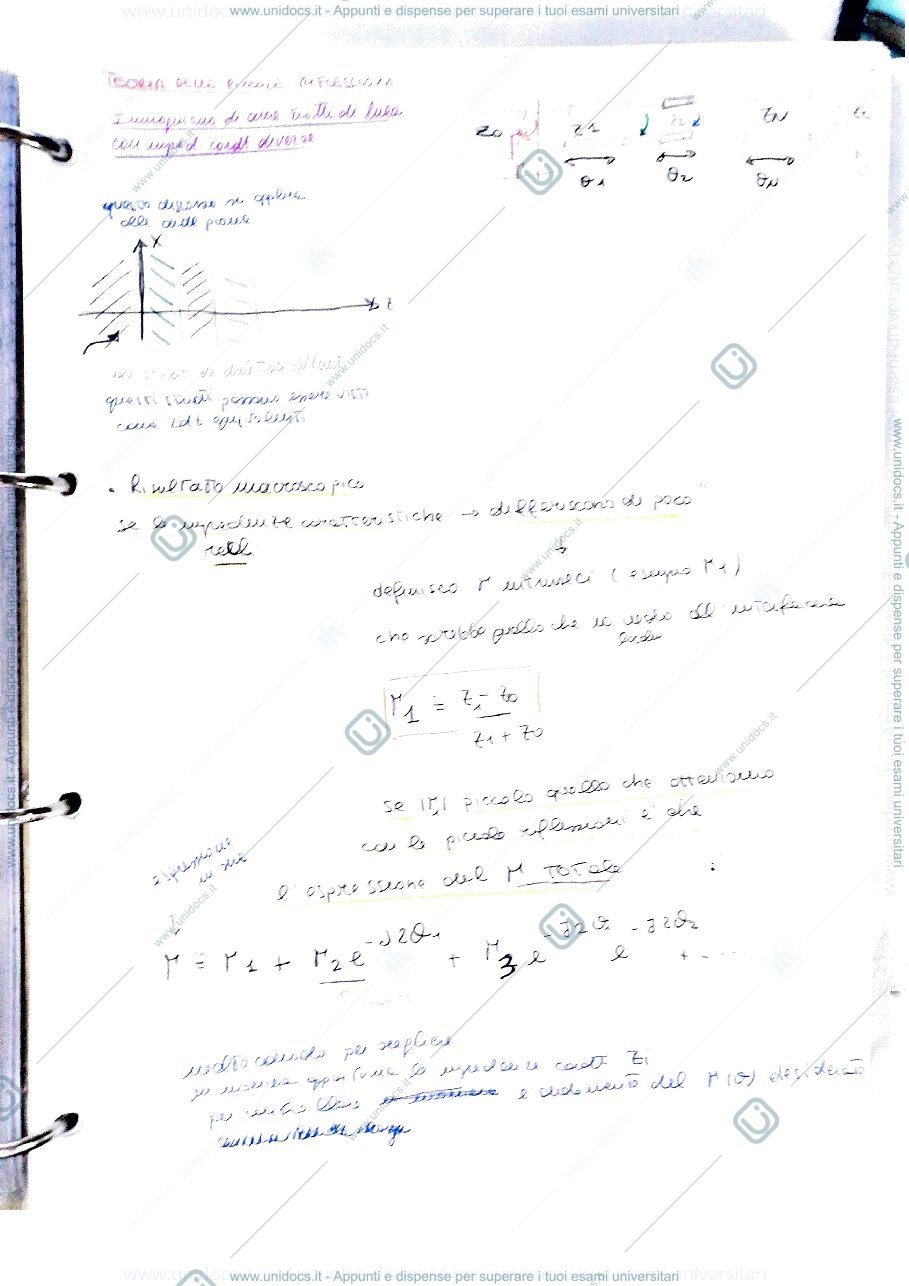 www.unidocs.it - Appunti e dispense per superare i tuoi esami universitari
TEORIA delle piccole RIFLESSIONI
Immaginiamo di avere tratti di linea
con imped caratt diverse
Z0 Z1 Z2 ZN ZL
θ1 θ2 θN
questo discorso si applica
alle onde piane
x
z
questi strati possono essere visti
come Ldt equivalenti
. Risultato macroscopico
se le impedenze caratteristiche → differiscono di poco
reali
definisco Γ intrinseci ( esempio Γ1 )
che sarebbe quello che si vede all'interfaccia
Γ1 = Z1 - Z0
Z1 + Z0
se |Γi| piccolo quello che otteniamo
con le piccole riflessioni è che
espressione
in serie
l'espressione del Γ TOTALE :
Γ = Γ1 + Γ2 e^-J2θ1 + Γ3 e^-J2θ1 e^-J2θ2 + - ...
molto comodo per scegliere
in maniera opportuna le impedenze caratt Zi
per controllare l'andamento del Γ(θ) desiderato
www.unidocs.it - Appunti e dispense per superare i tuoi esami universitari